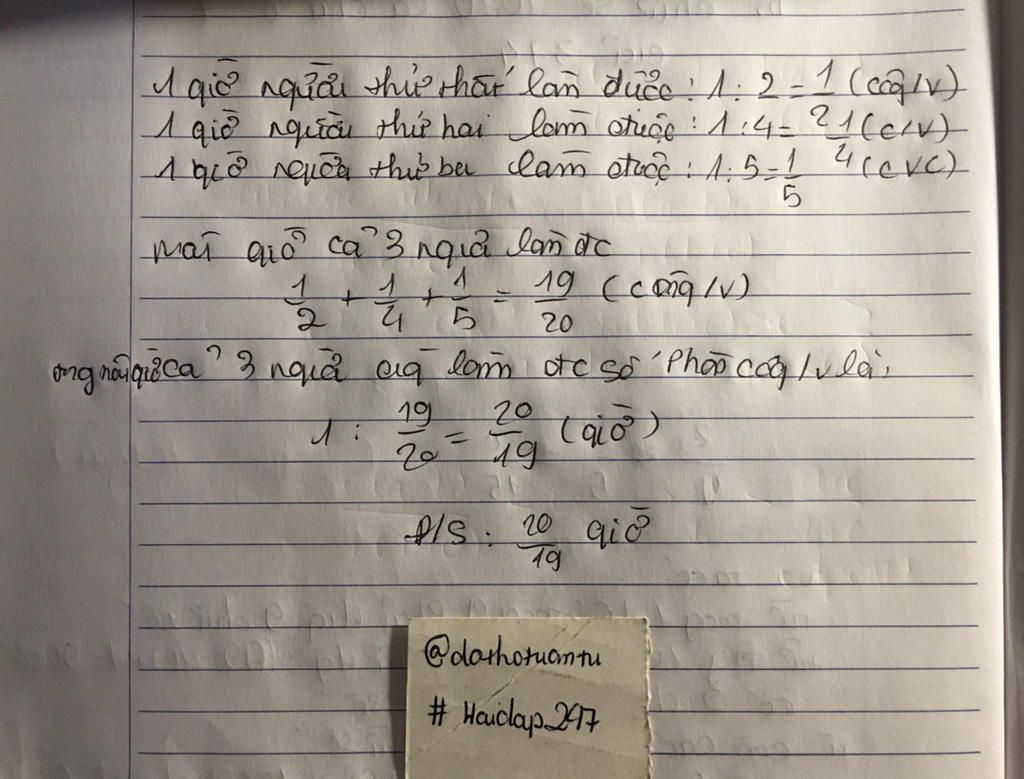 1 giờ người thứ nhất làm được: 1 : 2 = 1/2 (côg/v)
1 giờ người thứ hai làm được: 1 : 4 = 1/4 (c/v)
1 giờ người thứ ba làm được: 1 : 5 = 1/5 (cvc)
giờ cả 3 làm đc
1/2 + 1/4 + 1/5 = 19/20 (công/v)
giờ cả 3 làm đc số phần côg/v là,
1 : 19/20 = 20/19 (giờ)
Đ/S : 20/19 giờ
@dathotuantu
# Hoidap_247